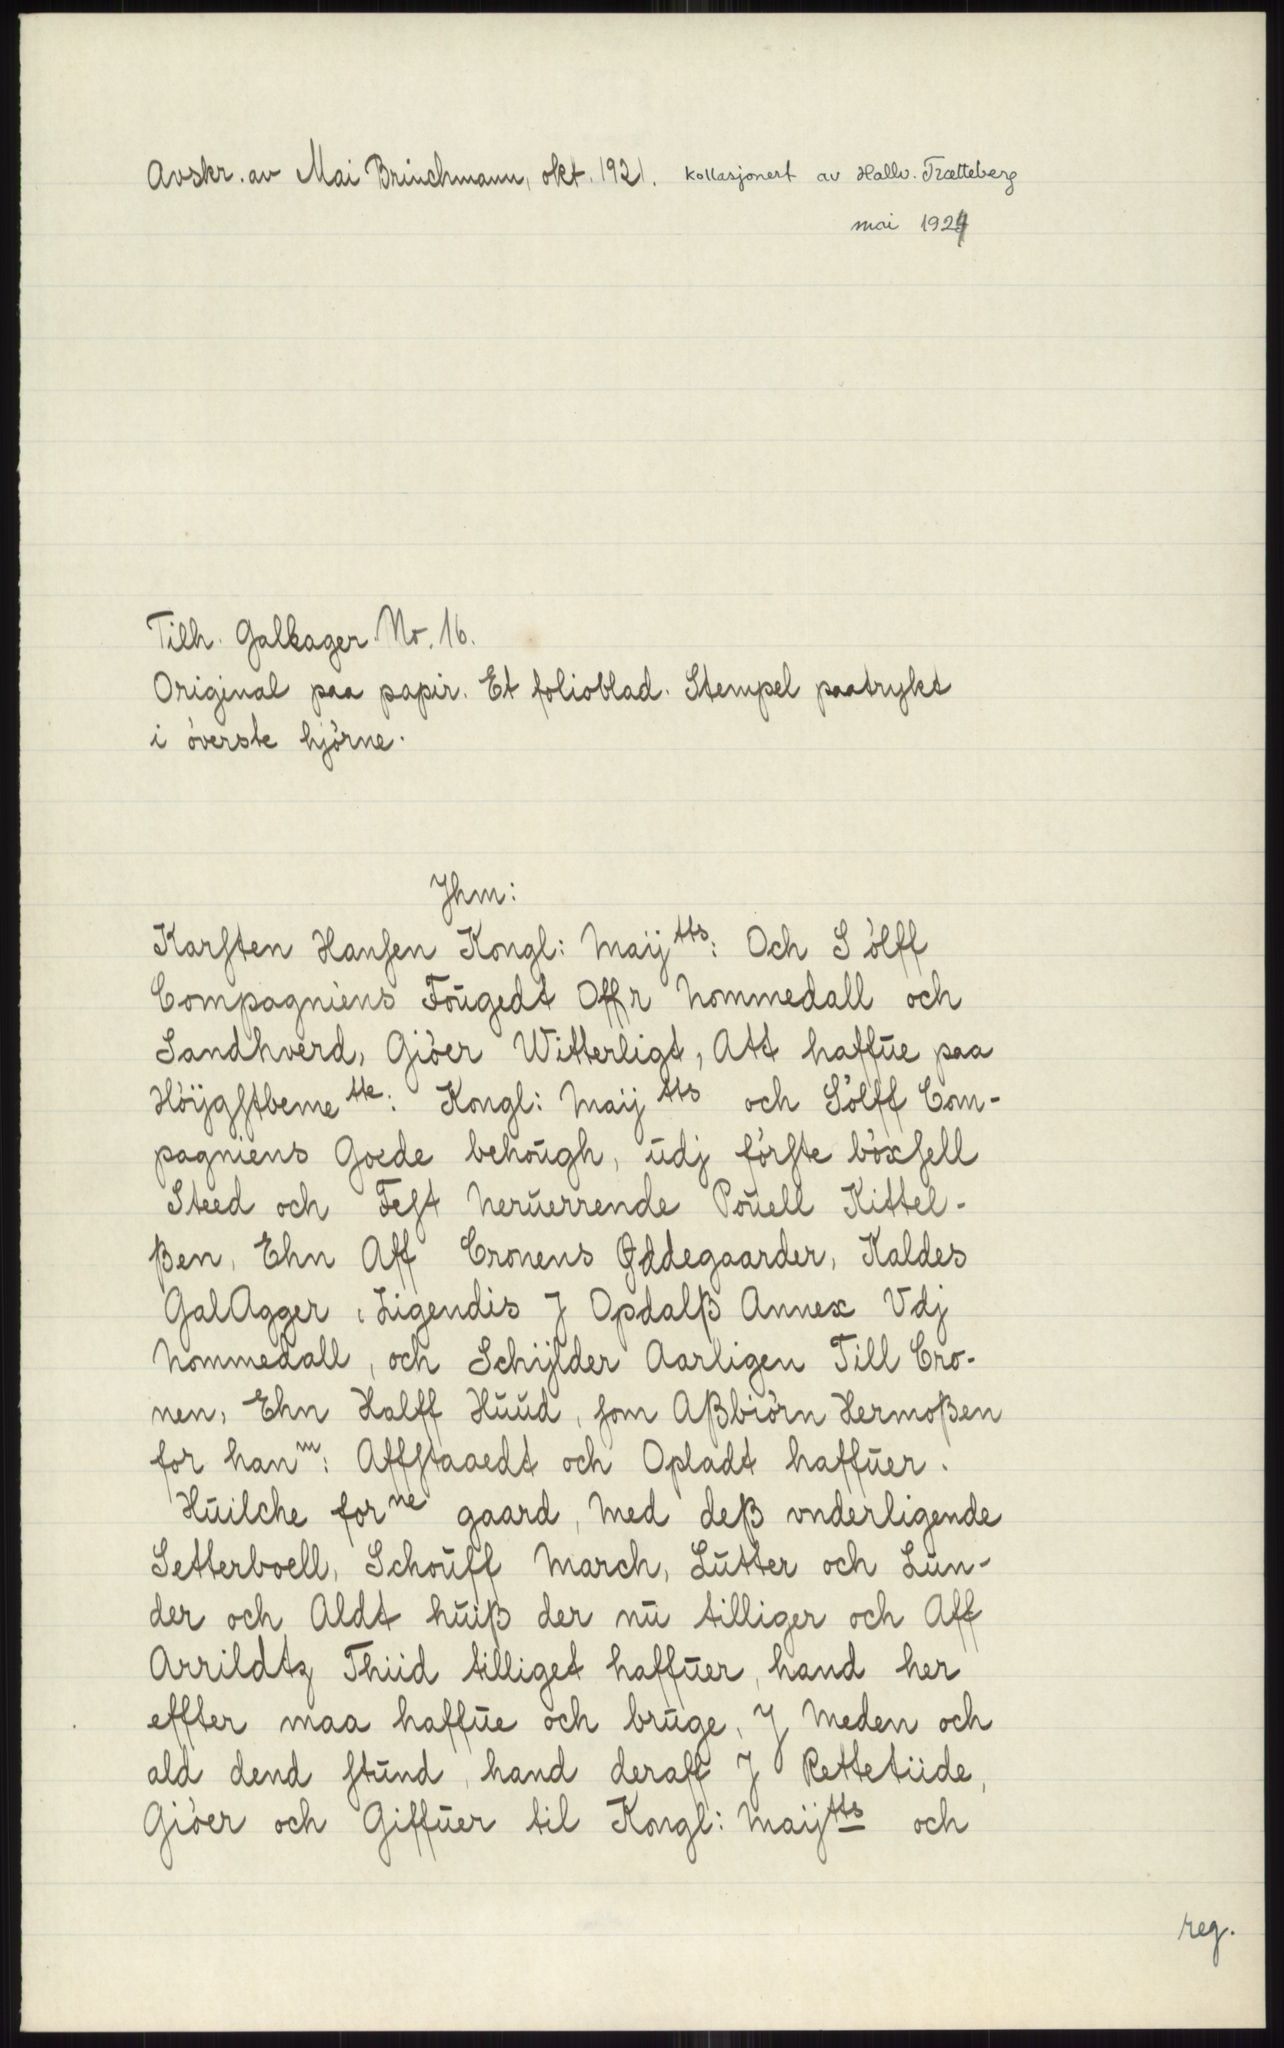 Avskr. av Mai Brinchmann, okt. 1921. Kollasjonert av Hallv. Trætteberg
mai 1924
Tilh. Galkager No. 16.
Original paa papir. Et folioblad. Stempel paatrykt
i överste hjörne.
Jhm:
Karſten Hanſen Kongl: Maij tts: Och Sölff
Compagniens Foŭgedt Offr Nommedall och
Sandhverd, Giöer Witterligt, Att haffŭe paa
Höijgſtbeme tte: Kongl: Maij tts och Sölff Com-
pagniens Goede behoŭgh, ŭdj förſte böxſell
Steed och Feſt Nerŭerrende Poŭell Kittel-
ßen, Ehn Aff Cronens Øddegaarder, Kaldes
GalAgger, Ligendis J Opdalß Annex Vdj
Nommedall, och Schijlder Aarligen Till Cro-
nen, Ehn Halff Hŭŭd, ſom Aßbiörn Hermoßen
for han m: Affſtaaedt och Opladt haffŭer.
Hŭilche for ne gaard, Med deß vnderligende
Setterboell, Schoŭff March, Lŭtter och Lŭn-
der och Aldt hŭiß der nŭ tilliger och Aff
Arrildtz Thiid tilliget haffŭer, hand her
effter maa haffŭe och brŭge, J Meden och
ald dend ſtŭnd, hand deraff J Rettetiide,
Giöer och Giffŭer til Kongl: Maij tts och
reg.